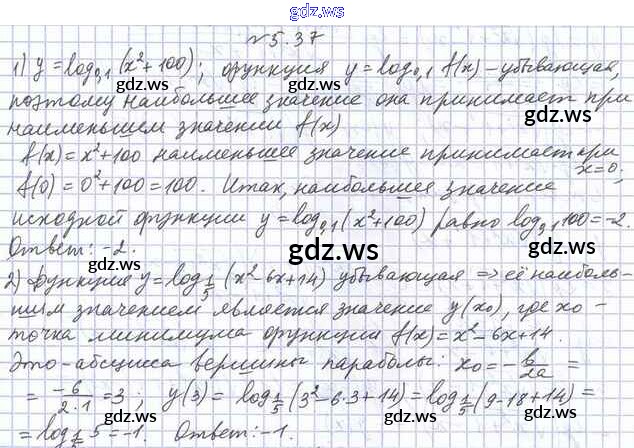 gdz.ws
№5.37
1) y = log₀,₁(x²+100); функция y = log₀,₁ f(x) – убывающая,
gdz.ws gdz.ws
поэтому наибольшее значение она принимает при
наименьшем значении f(x)
f(x) = x²+100 наименьшее значение принимает при
x=0.
f(0) = 0²+100 = 100. Итак, наибольшее значение
gdz.ws gdz.ws
исходной функции y = log₀,₁(x²+100) равно log₀,₁100 = -2.
Ответ: -2.
gdz.ws
2) Функция y = log_{1/5}(x²-6x+14) убывающая ⇒ её наиболь-
шим значением является значение y(x₀), где x₀ –
gdz.ws gdz.ws
точка минимума функции f(x) = x²-6x+14.
Это – абсцисса вершины параболы: x₀ = -b/2a =
= -6/2·1 = 3; y(3) = log_{1/5}(3²-6·3+14) = log_{1/5}(9-18+14) =
gdz.ws gdz.ws
= log_{1/5} 5 = -1. Ответ: -1.